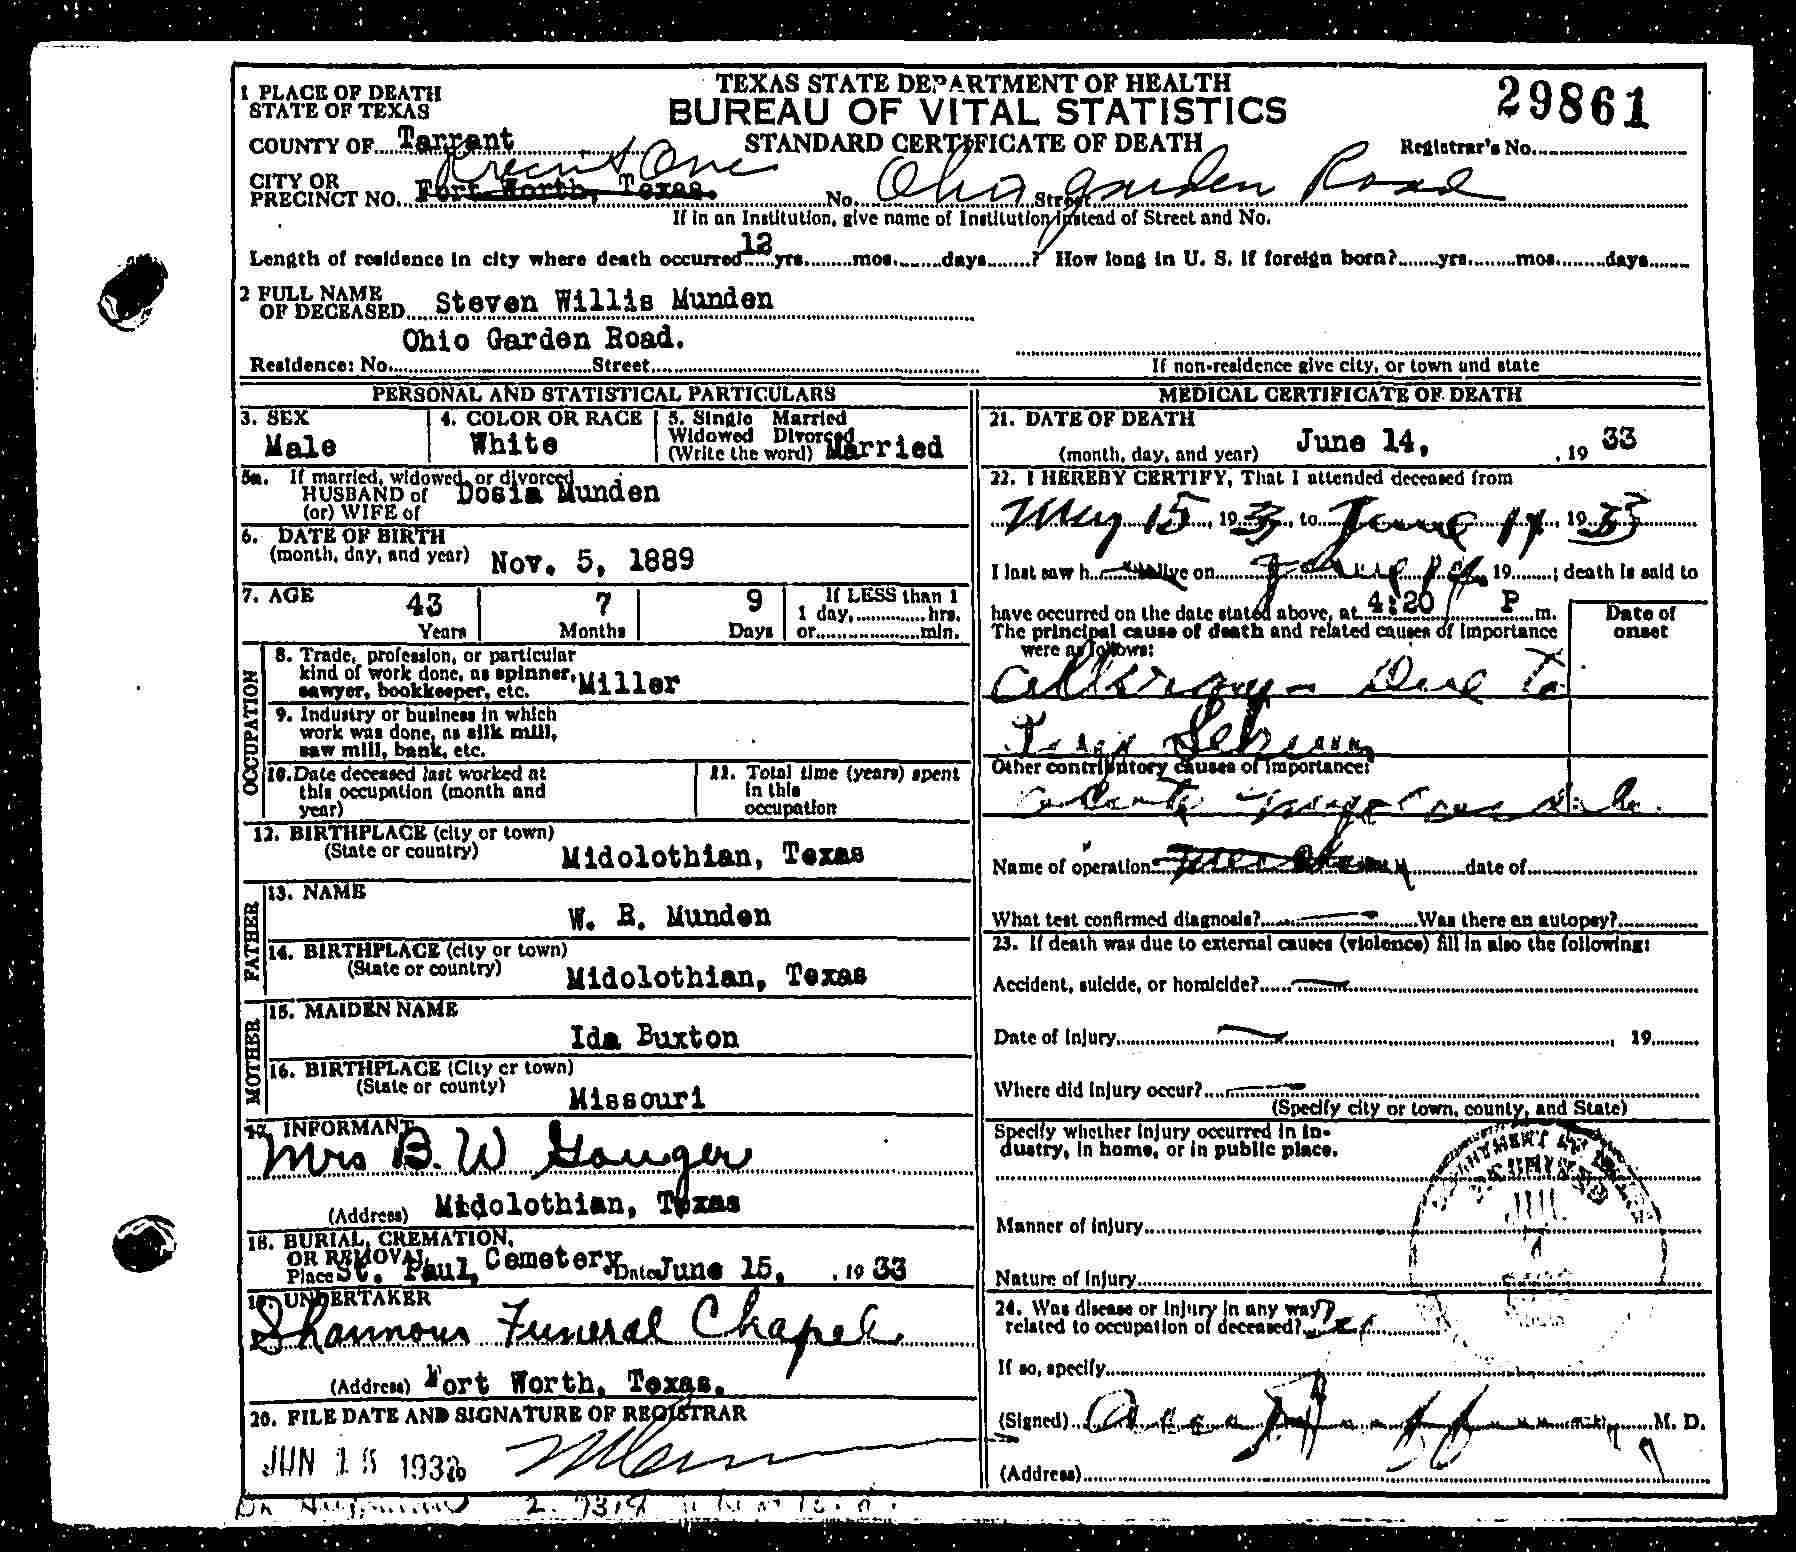 TEXAS STATE DEPARTMENT OF HEALTH
BUREAU OF VITAL STATISTICS
STANDARD CERTIFICATE OF DEATH
29861
Registrar's No.
1 PLACE OF DEATH
STATE OF TEXAS
COUNTY OF Tarrant
Precinct One
CITY OR
PRECINCT NO. Fort Worth, Texas. No. Street Ohio Garden Road
If in an Institution, give name of Institution instead of Street and No.
Length of residence in city where death occurred 12 yrs. mos. days ? How long in U. S. if foreign born? yrs. mos. days
2 FULL NAME
OF DECEASED Steven Willis Munden
Ohio Garden Road.
Residence: No. Street
If non-residence give city, or town and state
PERSONAL AND STATISTICAL PARTICULARS
3. SEX
Male
4. COLOR OR RACE
White
5. Single Married
Widowed Divorced
(Write the word) Married
5a. If married, widowed, or divorced
HUSBAND of Dosia Munden
(or) WIFE of
6. DATE OF BIRTH
(month, day, and year) Nov. 5, 1889
7. AGE 43 Years 7 Months 9 Days
If LESS than 1
1 day, hrs.
or min.
OCCUPATION
8. Trade, profession, or particular
kind of work done, as spinner,
sawyer, bookkeeper, etc. Miller
9. Industry or business in which
work was done, as silk mill,
saw mill, bank, etc.
10. Date deceased last worked at
this occupation (month and
year)
11. Total time (years) spent
in this
occupation
12. BIRTHPLACE (city or town)
(State or country) Midolothian, Texas
FATHER
13. NAME
W. R. Munden
14. BIRTHPLACE (city or town)
(State or country) Midolothian, Texas
MOTHER
15. MAIDEN NAME
Ida Buxton
16. BIRTHPLACE (City or town)
(State or county) Missouri
17. INFORMANT
Mrs B. W Gouger
(Address) Midolothian, Texas
18. BURIAL, CREMATION,
OR REMOVAL
Place St. Paul, Cemetery. Date June 15, 1933
19. UNDERTAKER
Shannons Funeral Chapel
(Address) Fort Worth, Texas.
20. FILE DATE AND SIGNATURE OF REGISTRAR
JUN 15 193
MEDICAL CERTIFICATE OF DEATH
21. DATE OF DEATH
(month, day, and year) June 14, 1933
22. I HEREBY CERTIFY, That I attended deceased from
May 15, 1933, to June 14, 1933
I last saw h alive on June 14, 19 ; death is said to
have occurred on the date stated above, at 4:20 P m.
The principal cause of death and related causes of importance
were as follows:
Date of
onset
Due to
Other contributory causes of importance:
Name of operation date of
What test confirmed diagnosis? Was there an autopsy?
23. If death was due to external causes (violence) fill in also the following:
Accident, suicide, or homicide?
Date of injury , 19
Where did injury occur?
(Specify city or town, county, and State)
Specify whether injury occurred in in-
dustry, in home, or in public place.
Manner of injury
Nature of injury
24. Was disease or injury in any way
related to occupation of deceased?
If so, specify
(Signed) M. D.
(Address)